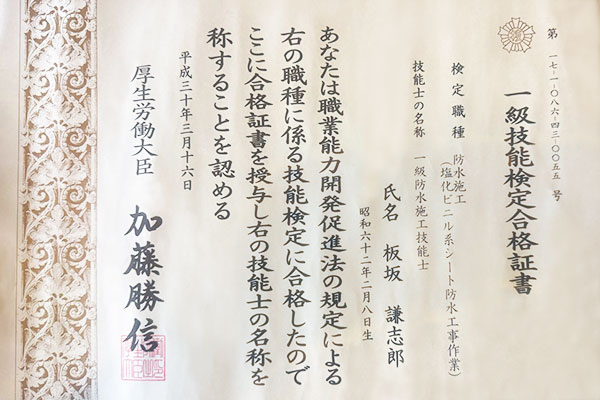 第一七-1-〇八六-四三-〇〇五五号
一級技能検定合格証書
検定職種 防水施工
(塩化ビニル系シート防水工事作業)
技能士の名称 一級防水施工技能士
氏名 板坂 謙志郎
昭和六十二年二月八日生
あなたは職業能力開発促進法の規定による
右の職種に係る技能検定に合格したので
ここに合格証書を授与し右の技能士の名称を
称することを認める
平成三十年三月十六日
厚生労働大臣 加藤勝信